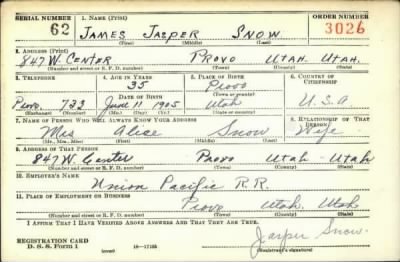 SERIAL NUMBER 1. NAME (Print) ORDER NUMBER
62 JAMES JASPER SNOW 3026
(First) (Middle) (Last)
2. ADDRESS (Print)
847 W. CENTER PROVO UTAH. UTAH.
(Number and street or R. F. D. number) (Town) (County) (State)
3. TELEPHONE 4. AGE IN YEARS 5. PLACE OF BIRTH 6. COUNTRY OF CITIZENSHIP
35 Provo
DATE OF BIRTH (Town or county)
Provo. 733 June 11 1905 Utah U.S.A.
(Exchange) (Number) (Mo.) (Day) (Yr.) (State or country)
7. NAME OF PERSON WHO WILL ALWAYS KNOW YOUR ADDRESS 8. RELATIONSHIP OF THAT PERSON
Mrs Alice Snow Wife
(Mr., Mrs., Miss) (First) (Middle) (Last)
9. ADDRESS OF THAT PERSON
847 W. Center Provo Utah Utah
(Number and street or R. F. D. number) (Town) (County) (State)
10. EMPLOYER'S NAME
Union Pacific R.R.
11. PLACE OF EMPLOYMENT OR BUSINESS
Provo Utah. Utah
(Number and street or R. F. D. number) (Town) (County) (State)
I AFFIRM THAT I HAVE VERIFIED ABOVE ANSWERS AND THAT THEY ARE TRUE.
REGISTRATION CARD Jasper Snow.
D. S. S. Form 1 16—17105 (Registrant's signature)